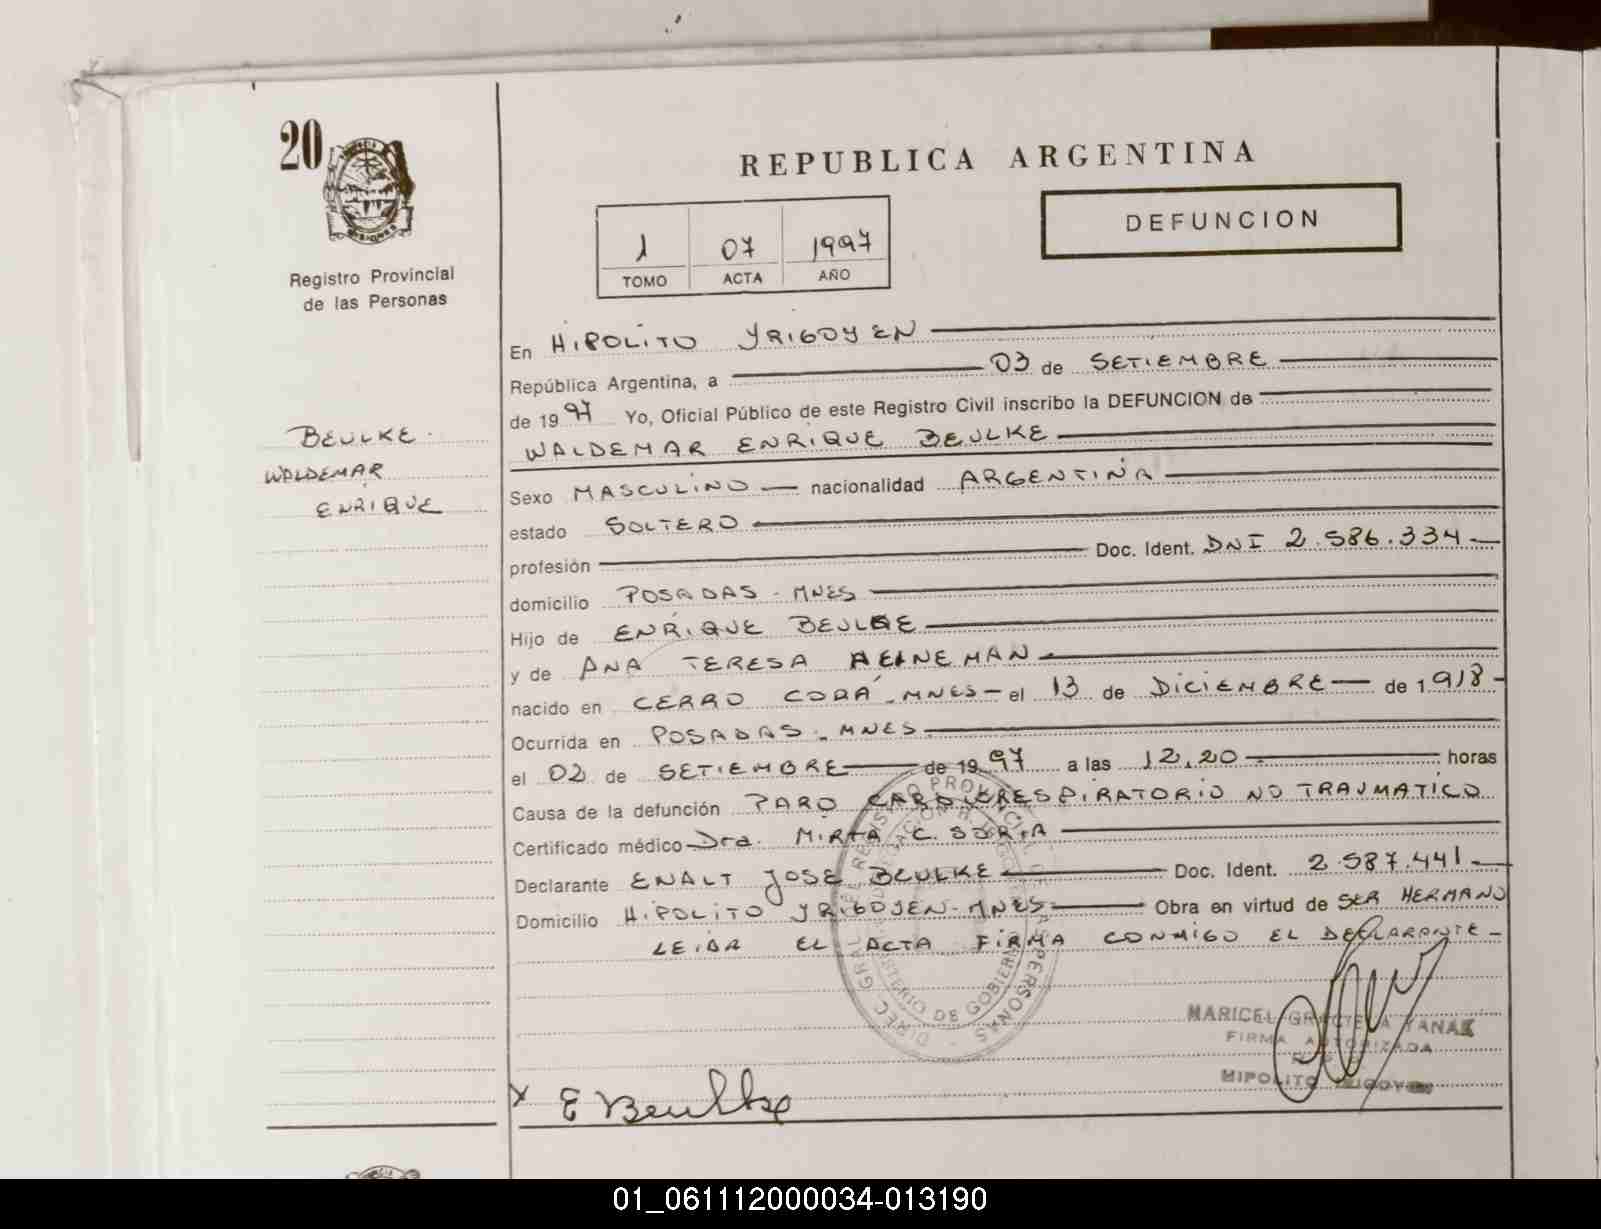 20
Registro Provincial
de las Personas
REPUBLICA ARGENTINA
1 07 1997
TOMO ACTA AÑO
DEFUNCION
BEULKE
WALDEMAR
ENRIQUE
En HIPOLITO YRIGOYEN
República Argentina, a 03 de SETIEMBRE
de 1997 Yo, Oficial Público de este Registro Civil inscribo la DEFUNCION de
WALDEMAR ENRIQUE BEULKE
Sexo MASCULINO nacionalidad ARGENTINA
estado SOLTERO
profesión Doc. Ident. DNI 2.586.334
domicilio POSADAS - MNES
Hijo de ENRIQUE BEULKE
y de ANA TERESA HEINEMAN
nacido en CERRO CORÁ - MNES - el 13 de DICIEMBRE de 1918
Ocurrida en POSADAS - MNES
el 02 de SETIEMBRE de 1997 a las 12,20 horas
Causa de la defunción PARO CARDIORESPIRATORIO NO TRAUMATICO
Certificado médico Dra. MIRTA C. SORIA
Declarante ENALT JOSE BEULKE Doc. Ident. 2.587.441
Domicilio HIPOLITO YRIGOYEN - MNES Obra en virtud de SER HERMANO
LEIDA EL ACTA FIRMA CONMIGO EL DECLARANTE -
MARICEL GRACIELA YANAK
FIRMA AUTORIZADA
HIPOLITO YRIGOYEN
X E Beulke
01_061112000034-013190